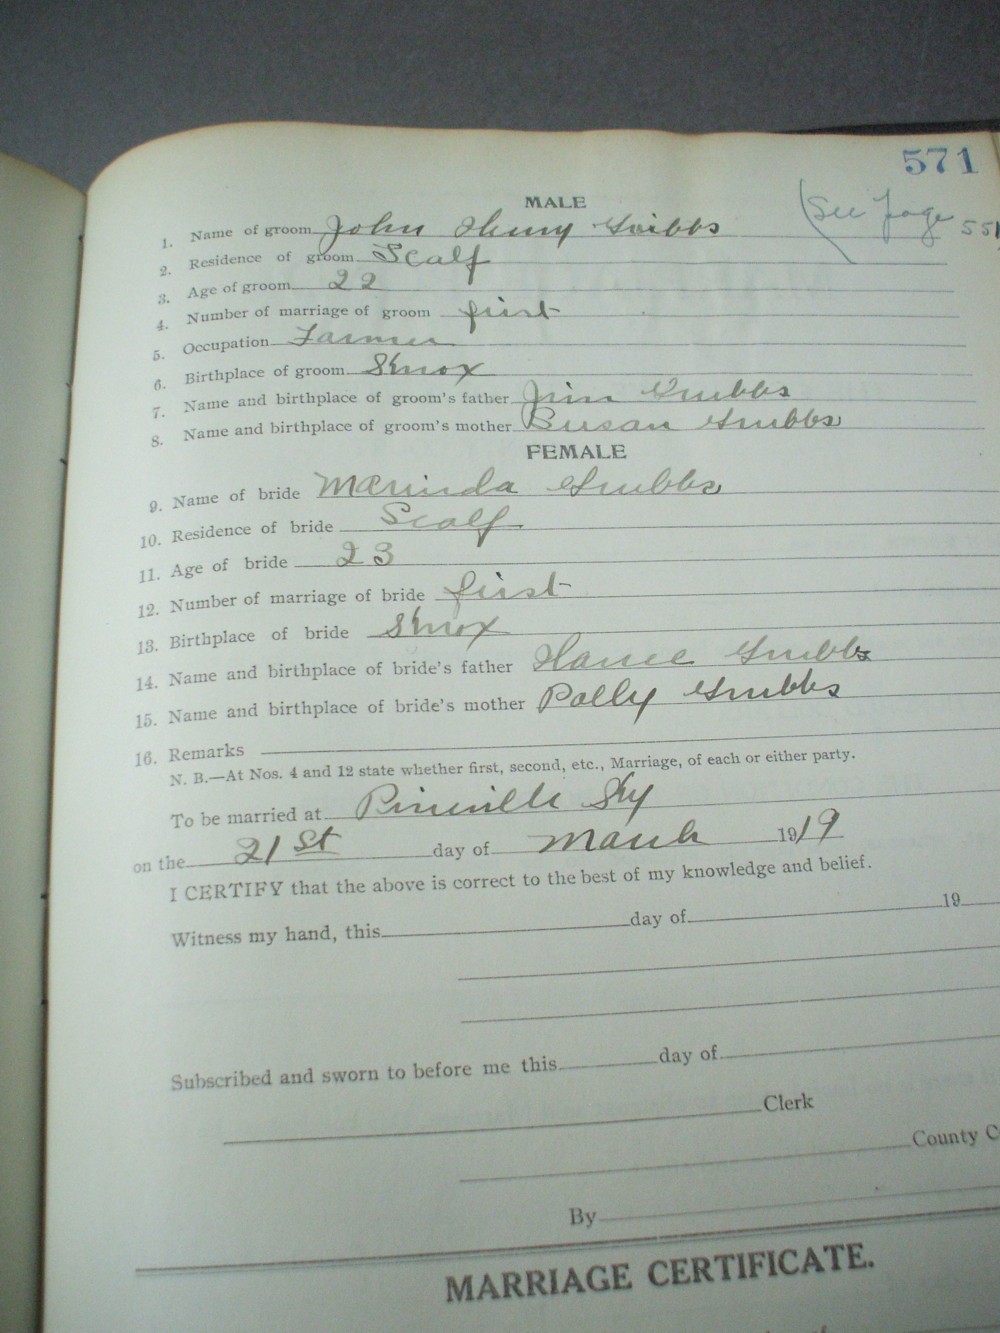 571
MALE
(See page 551
1. Name of groom John Henry Gribbs
2. Residence of groom Scalf
3. Age of groom 22
4. Number of marriage of groom first
5. Occupation Farmer
6. Birthplace of groom Knox
7. Name and birthplace of groom's father Jim Grubbs
8. Name and birthplace of groom's mother Susan Grubbs
FEMALE
9. Name of bride Marinda Grubbs
10. Residence of bride Scalf
11. Age of bride 23
12. Number of marriage of bride first
13. Birthplace of bride Knox
14. Name and birthplace of bride's father Hance Grubbs
15. Name and birthplace of bride's mother Polly Grubbs
16. Remarks
N. B.—At Nos. 4 and 12 state whether first, second, etc., Marriage, of each or either party.
To be married at Pineville Ky
on the 21st day of March 1919
I CERTIFY that the above is correct to the best of my knowledge and belief.
Witness my hand, this day of 19
Subscribed and sworn to before me this day of
Clerk
County C
By
MARRIAGE CERTIFICATE.